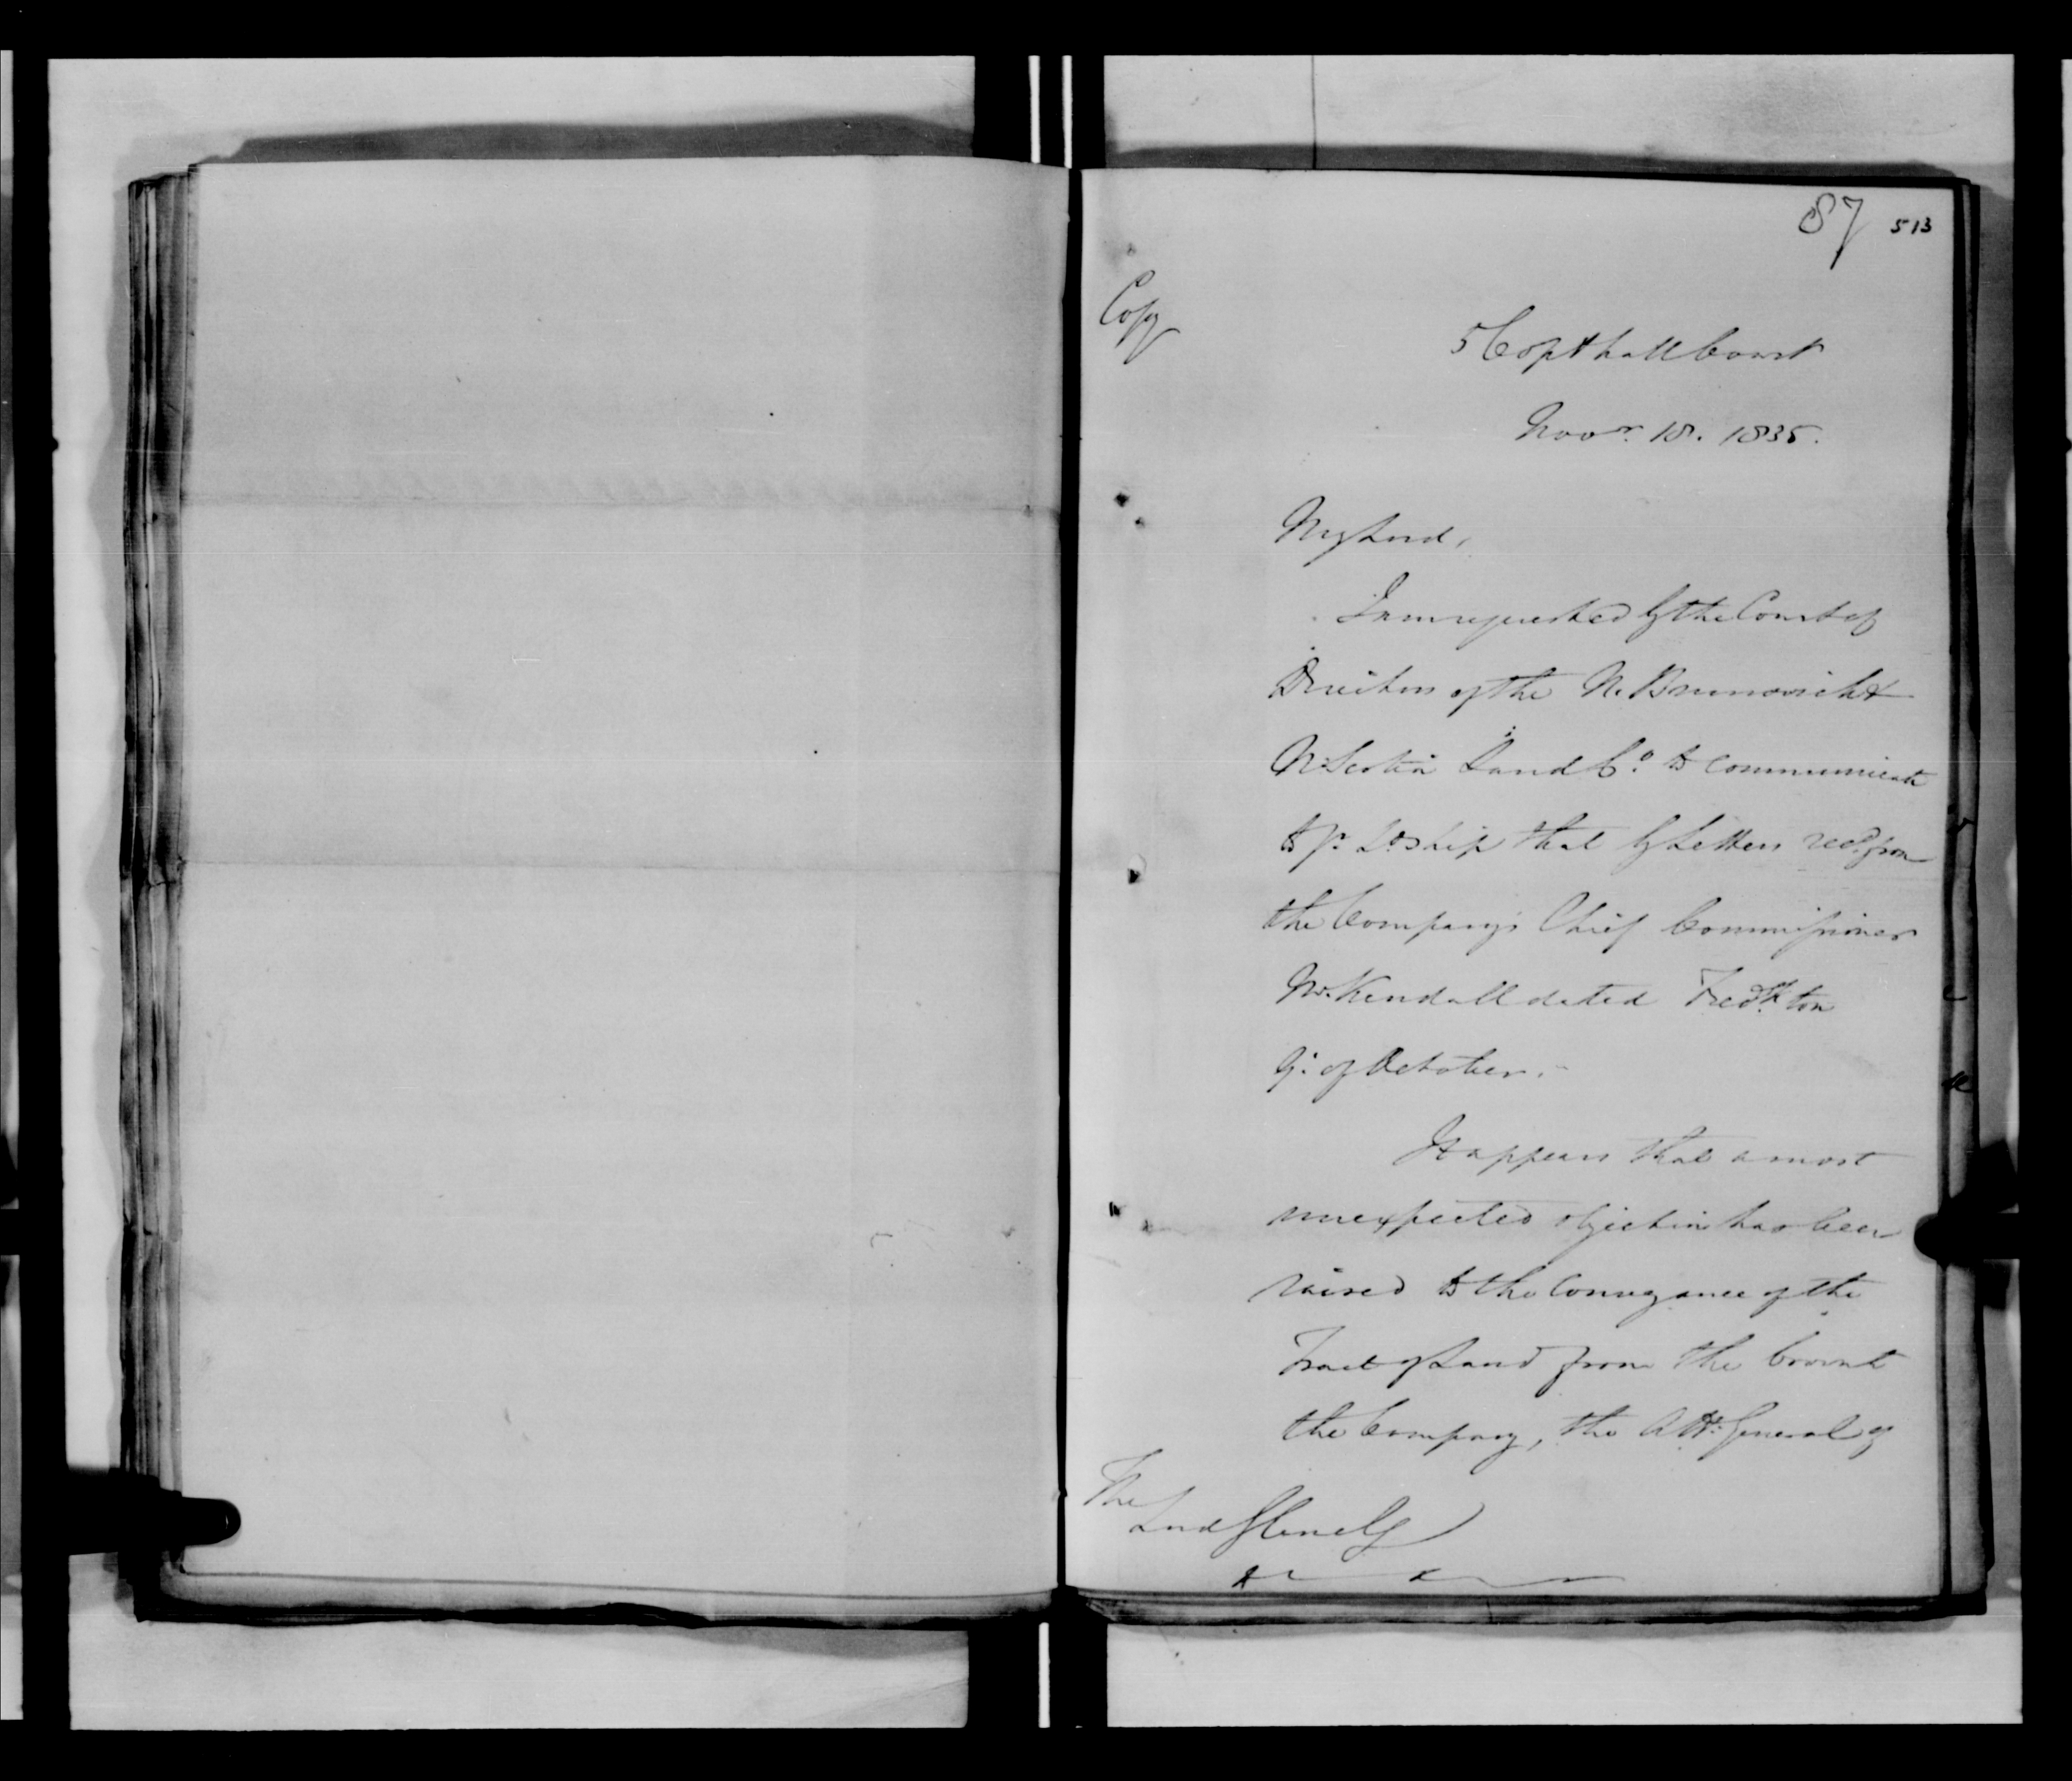 87 513
Copy
5 Copthall Court
Novr. 18. 1835.
My Lord,
I am requested by the Court of
Directors of the N. Brunswick &
N. Scotia Land Co. to communicate
to yr. Ldship that by Letters recd. from
the Company's Chief Commissioner
Mr. Kendall dated Fredk.ton
9. of October.
It appears that a most
unexpected objection has been
raised to the Conveyance of the
Tract of Land from the Crown to
the Company, the Atty. General of
The
Lord Glenelg